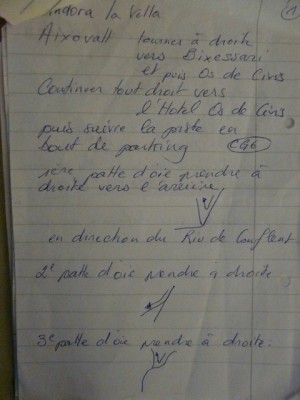 Andorra la Vella
1
Aixovall tourner à droite
vers Bixessarri
et puis Os de Civis
Continuer tout droit vers
l'Hotel Os de Civis
puis suivre la piste en
bout de parking CG6
1ère patte d'oie prendre à
droite vers l'
en direction du Riu de Conflent
2e patte d'oie prendre à droite
3e patte d'oie prendre à droite.